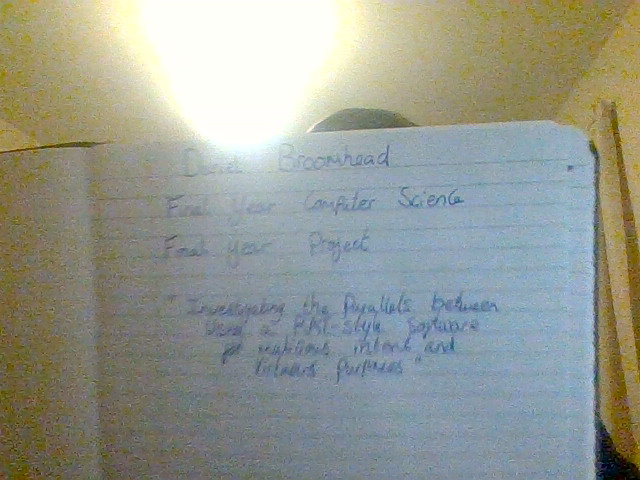 Daniel Broomhead
Final Year Computer Science
Final Year Project
"Investigating the Parallels between
Using a RAT-Style Software
for malicious intent and
purposes"